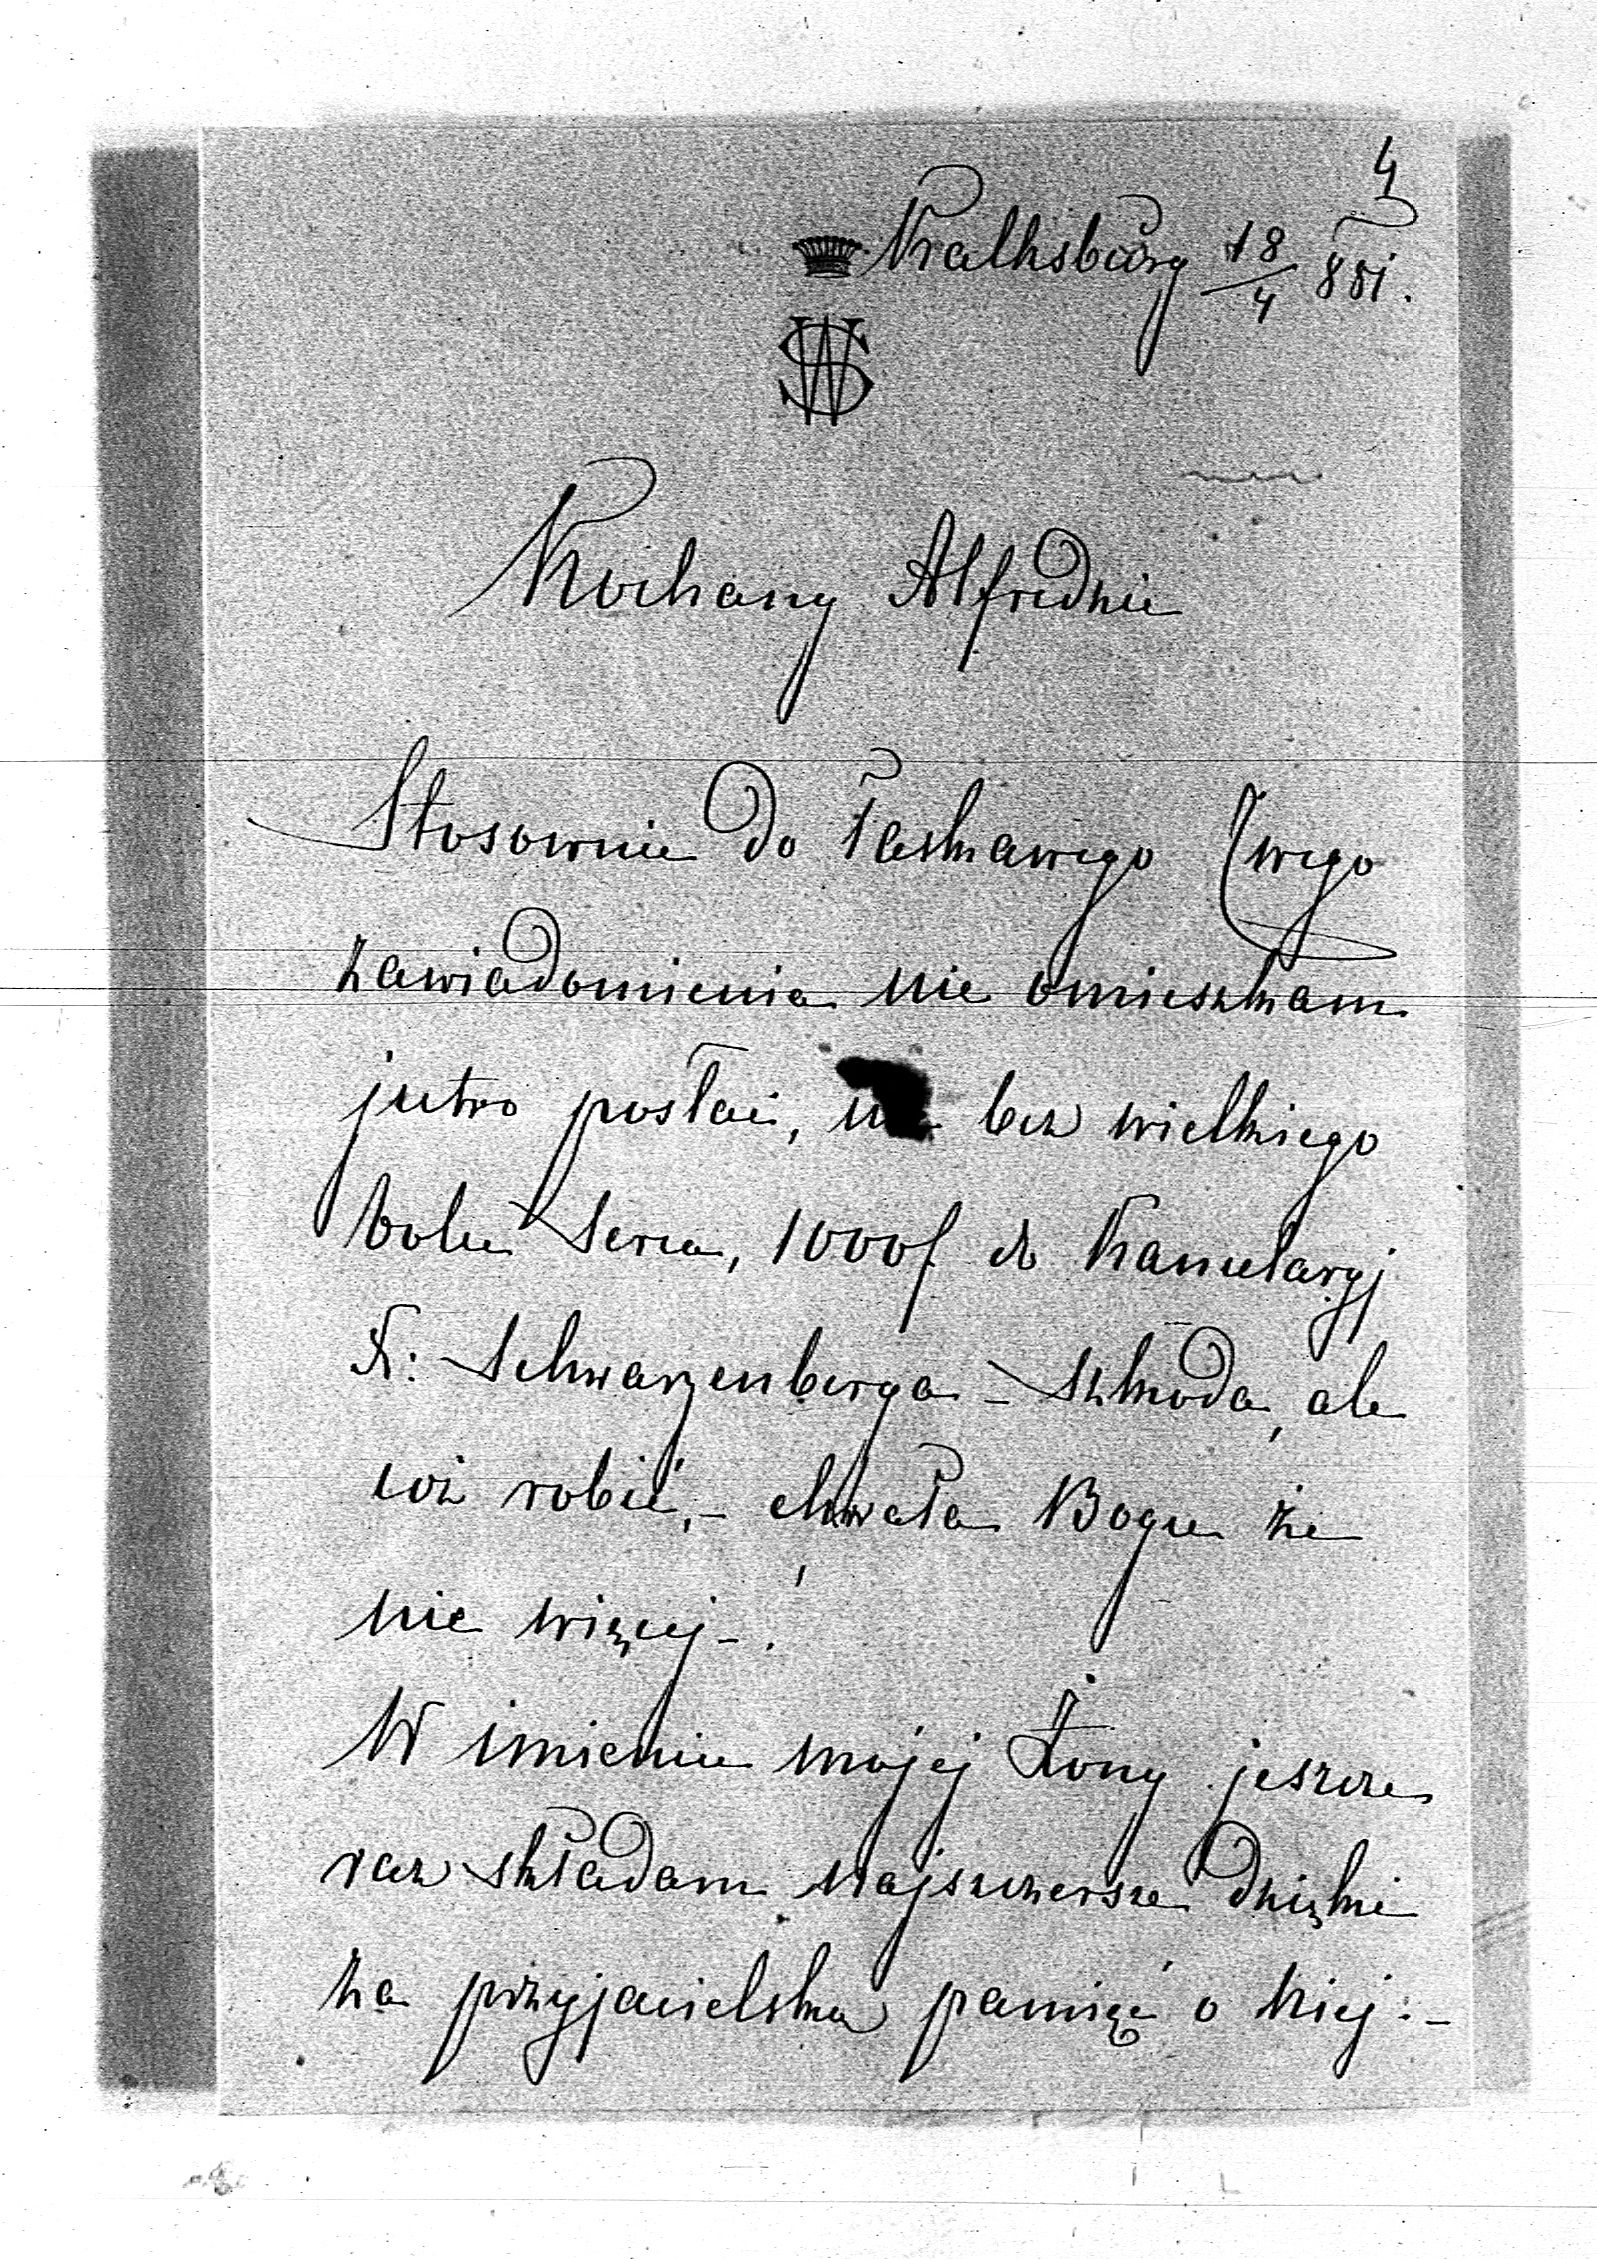 4
Kalksburg 18/4 881.
WS
Kochany Alfredzie
Stosownie do łaskawego Twego
zawiadomienia nie omieszkam
jutro posłać, nie bez wielkiego
bolu serca, 1000f do Kancelaryj
X: Schwarzenberga – szkoda, ale
coż robić, – chwała Bogu że
nie więcej –.
W imieniu mojej Żony jeszcze
raz składam najszczersze dzięki
za przyjacielską pamięć o niej. –